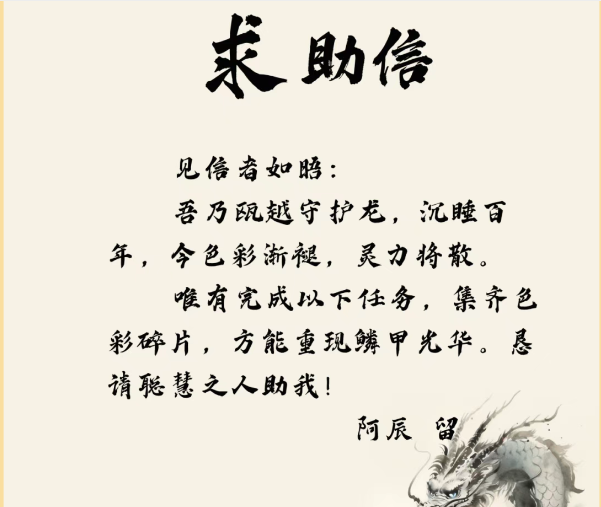 求助信
见信者如晤：
吾乃瓯越守护龙，沉睡百
年，今色彩渐褪，灵力将散。
唯有完成以下任务，集齐色
彩碎片，方能重现鳞甲光华。恳
请聪慧之人助我！
阿辰 留